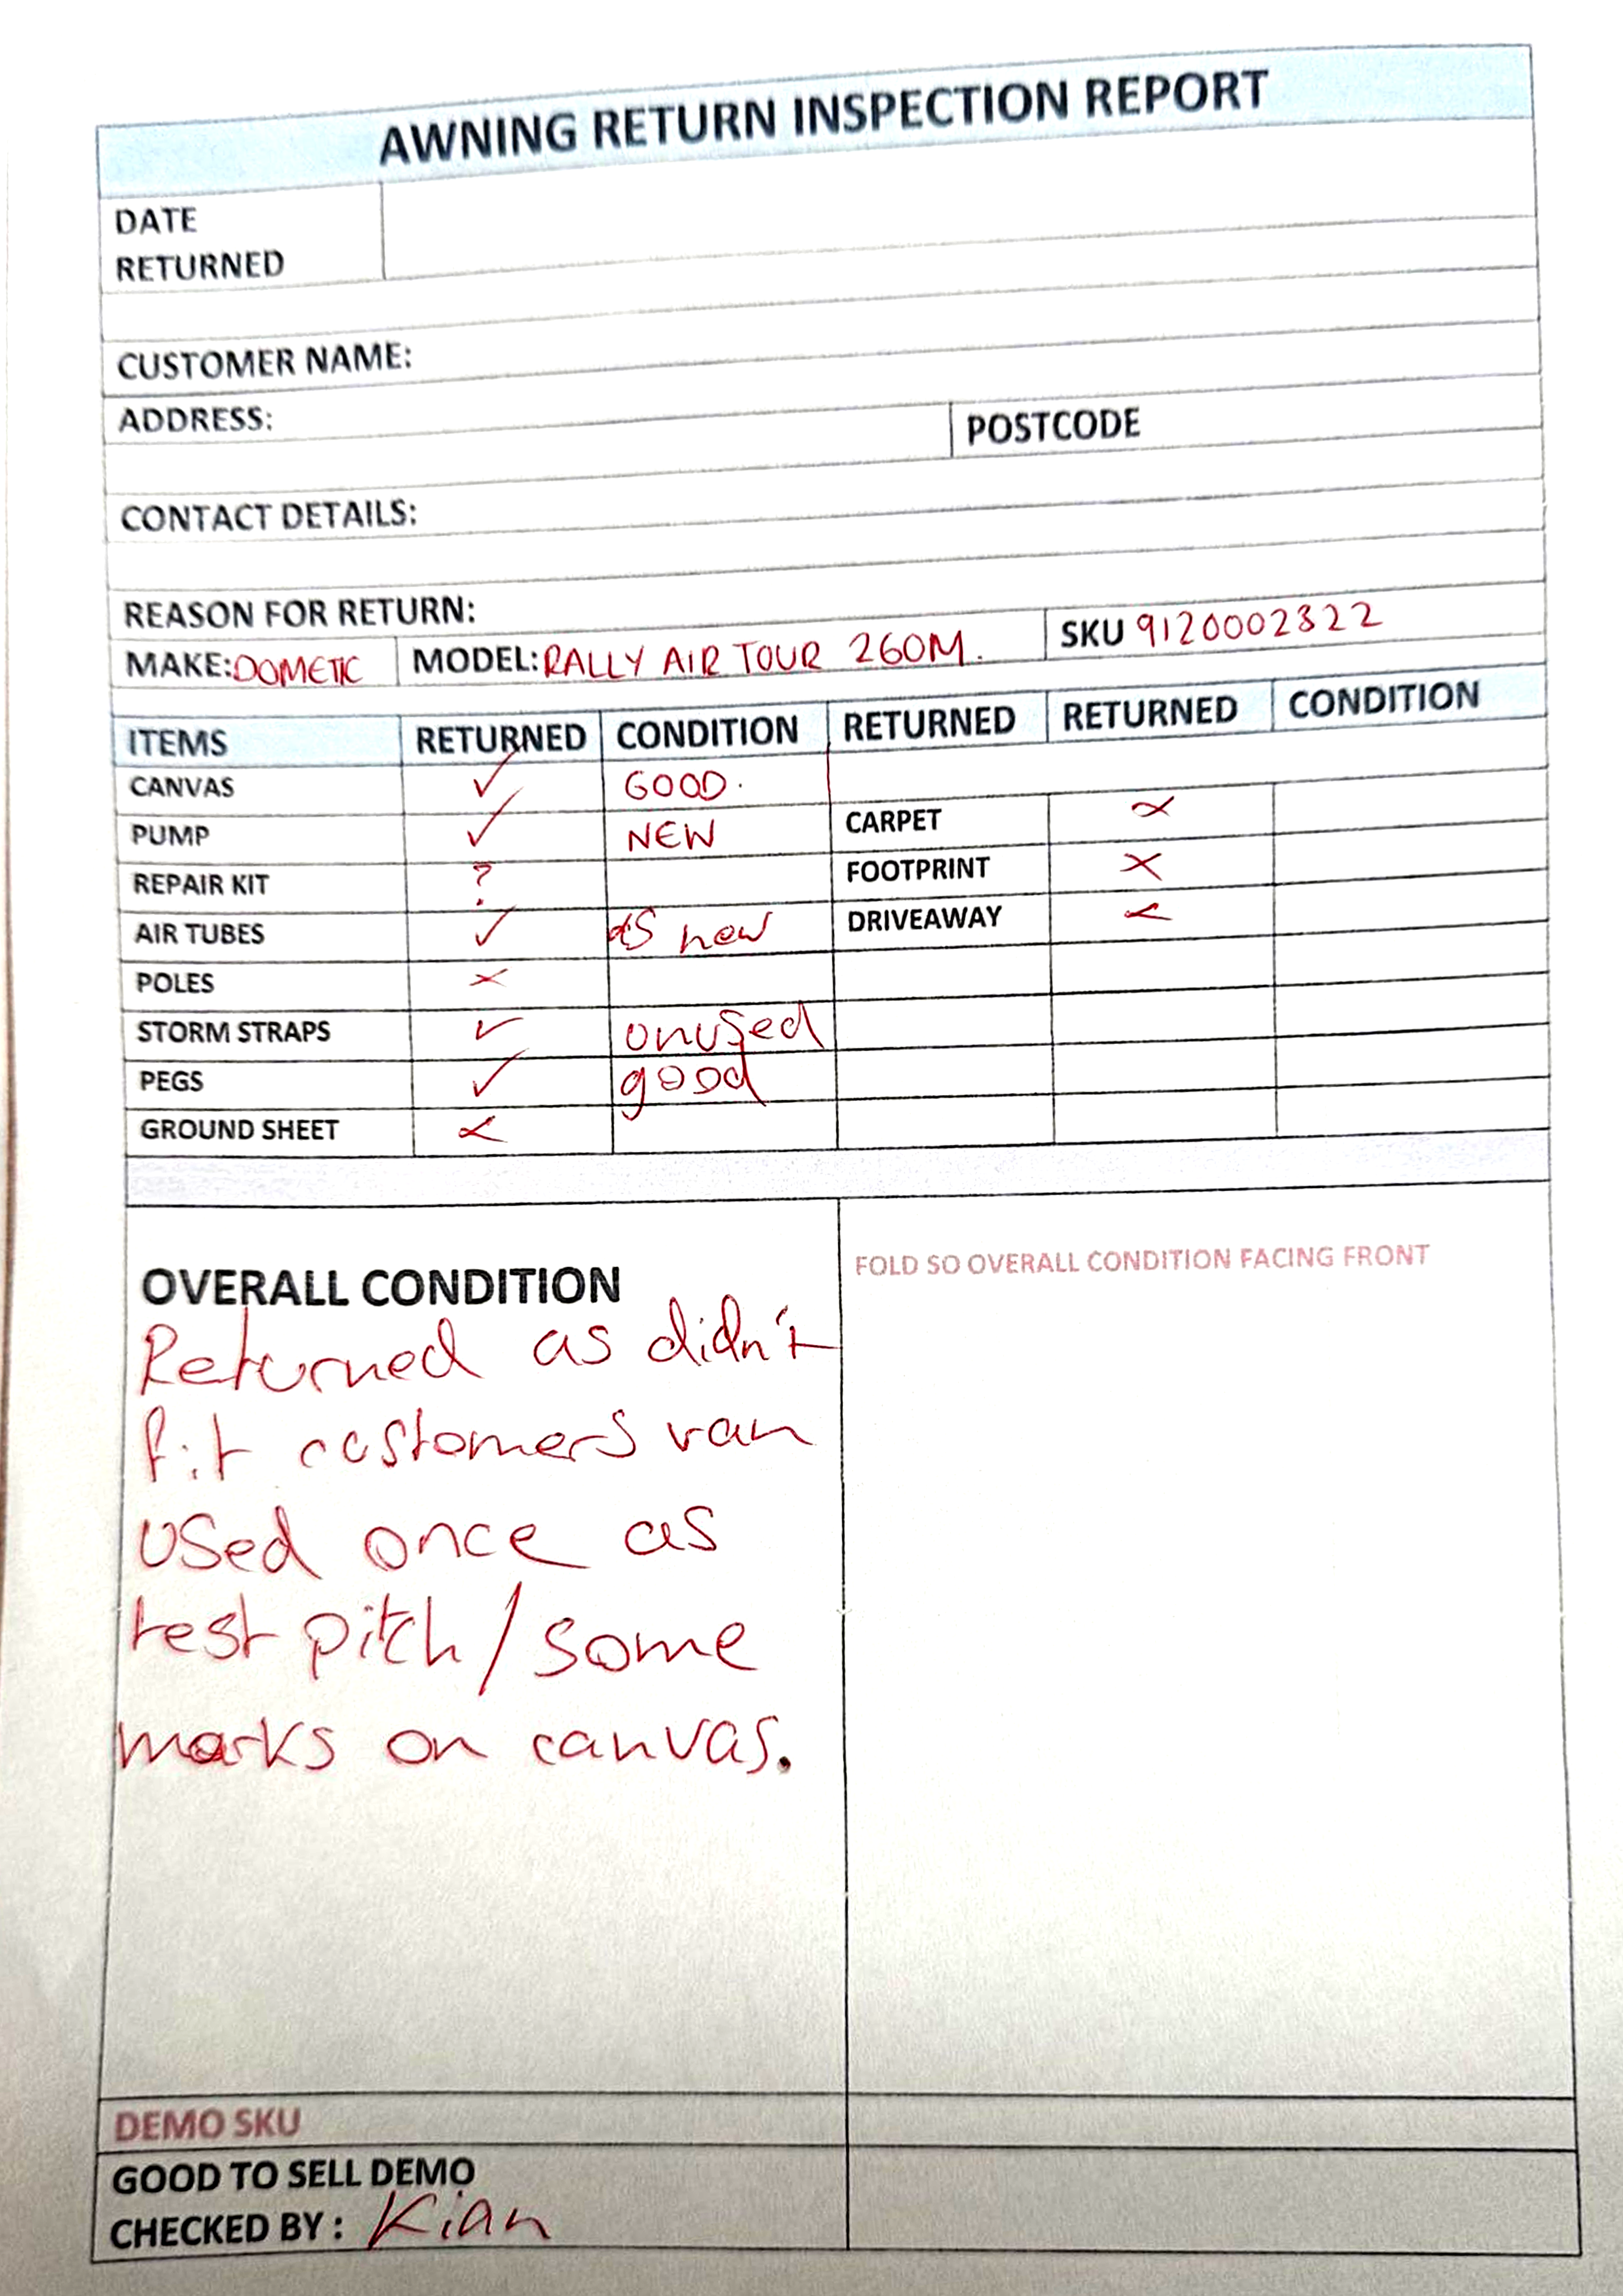 AWNING RETURN INSPECTION REPORT
DATE
RETURNED
CUSTOMER NAME:
ADDRESS:
POSTCODE
CONTACT DETAILS:
REASON FOR RETURN:
MAKE: DOMETIC MODEL: RALLY AIR TOUR 260M. SKU 9120002322
ITEMS RETURNED CONDITION RETURNED RETURNED CONDITION
CANVAS ✓ GOOD.
PUMP ✓ NEW CARPET ×
REPAIR KIT ? FOOTPRINT ×
AIR TUBES ✓ as new DRIVEAWAY ×
POLES ×
STORM STRAPS ✓ unused
PEGS ✓ good
GROUND SHEET ×
OVERALL CONDITION
FOLD SO OVERALL CONDITION FACING FRONT
Returned as didn't
fit customers van
used once as
test pitch/some
marks on canvas.
DEMO SKU
GOOD TO SELL DEMO
CHECKED BY : Kian